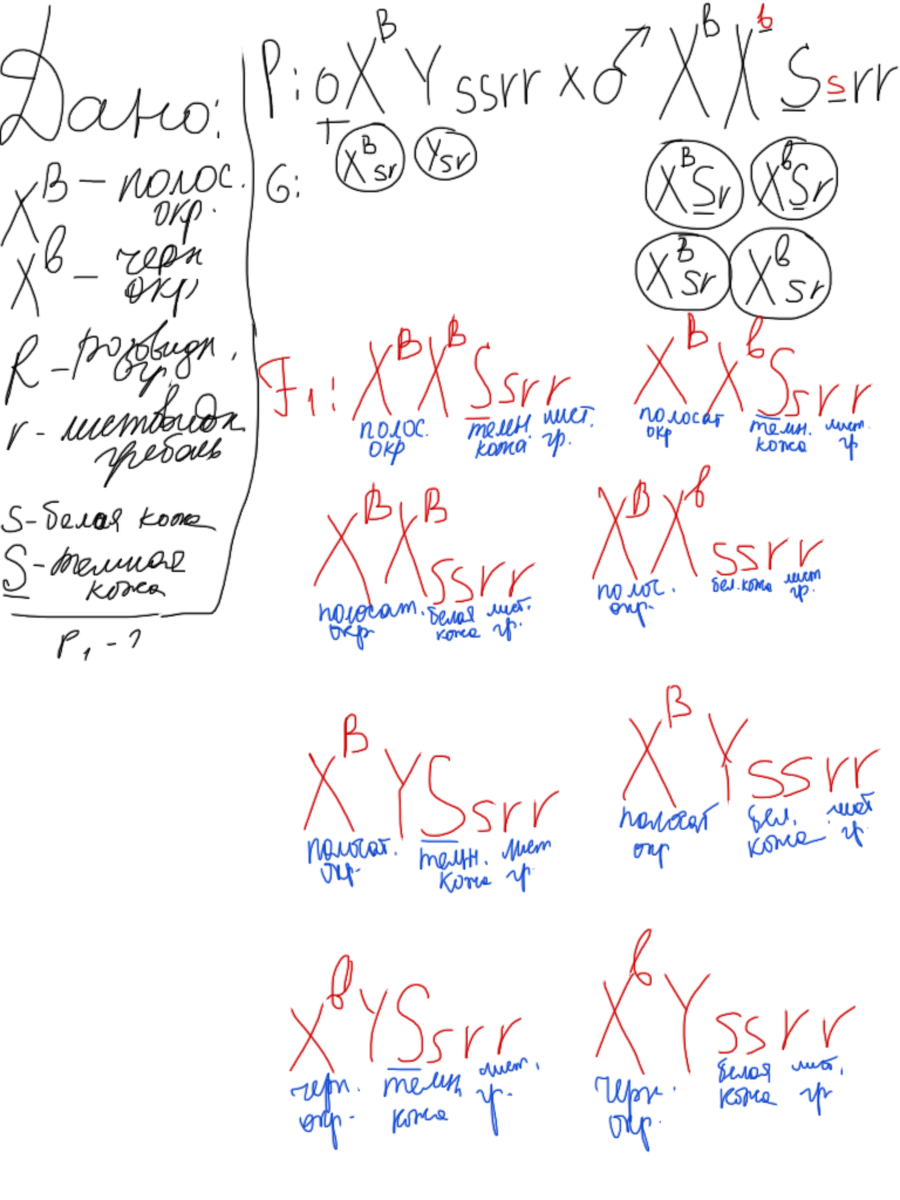 Дано:
X^B – полос.
окр.
X^b – черн
окр
R – розовидн.
гр.
r - листовидн
гребень
s - белая кожа
S - темная
кожа
P₁ - ?
P: ♀ X^B Y ssrr x ♂ X^B X^b Ssrr
G: X^B sr Y sr X^B Sr X^b Sr
X^B sr X^b sr
F₁: X^B X^B Ssrr X^B X^b Ssrr
полос. окр темн. кожа лист. гр. полосат окр темн. кожа лист. гр
X^B X^B ssrr X^B X^b ssrr
полосат. окр белая кожа лист. гр. полос. окр. бел. кожа лист гр.
X^B Y Ssrr X^B Y ssrr
полосат. окр. темн. кожа лист гр. полосат окр бел. кожа лист гр.
X^b Y Ssrr X^b Y ssrr
черн. окр. темн. кожа лист. гр. черн. окр. белая кожа лист. гр